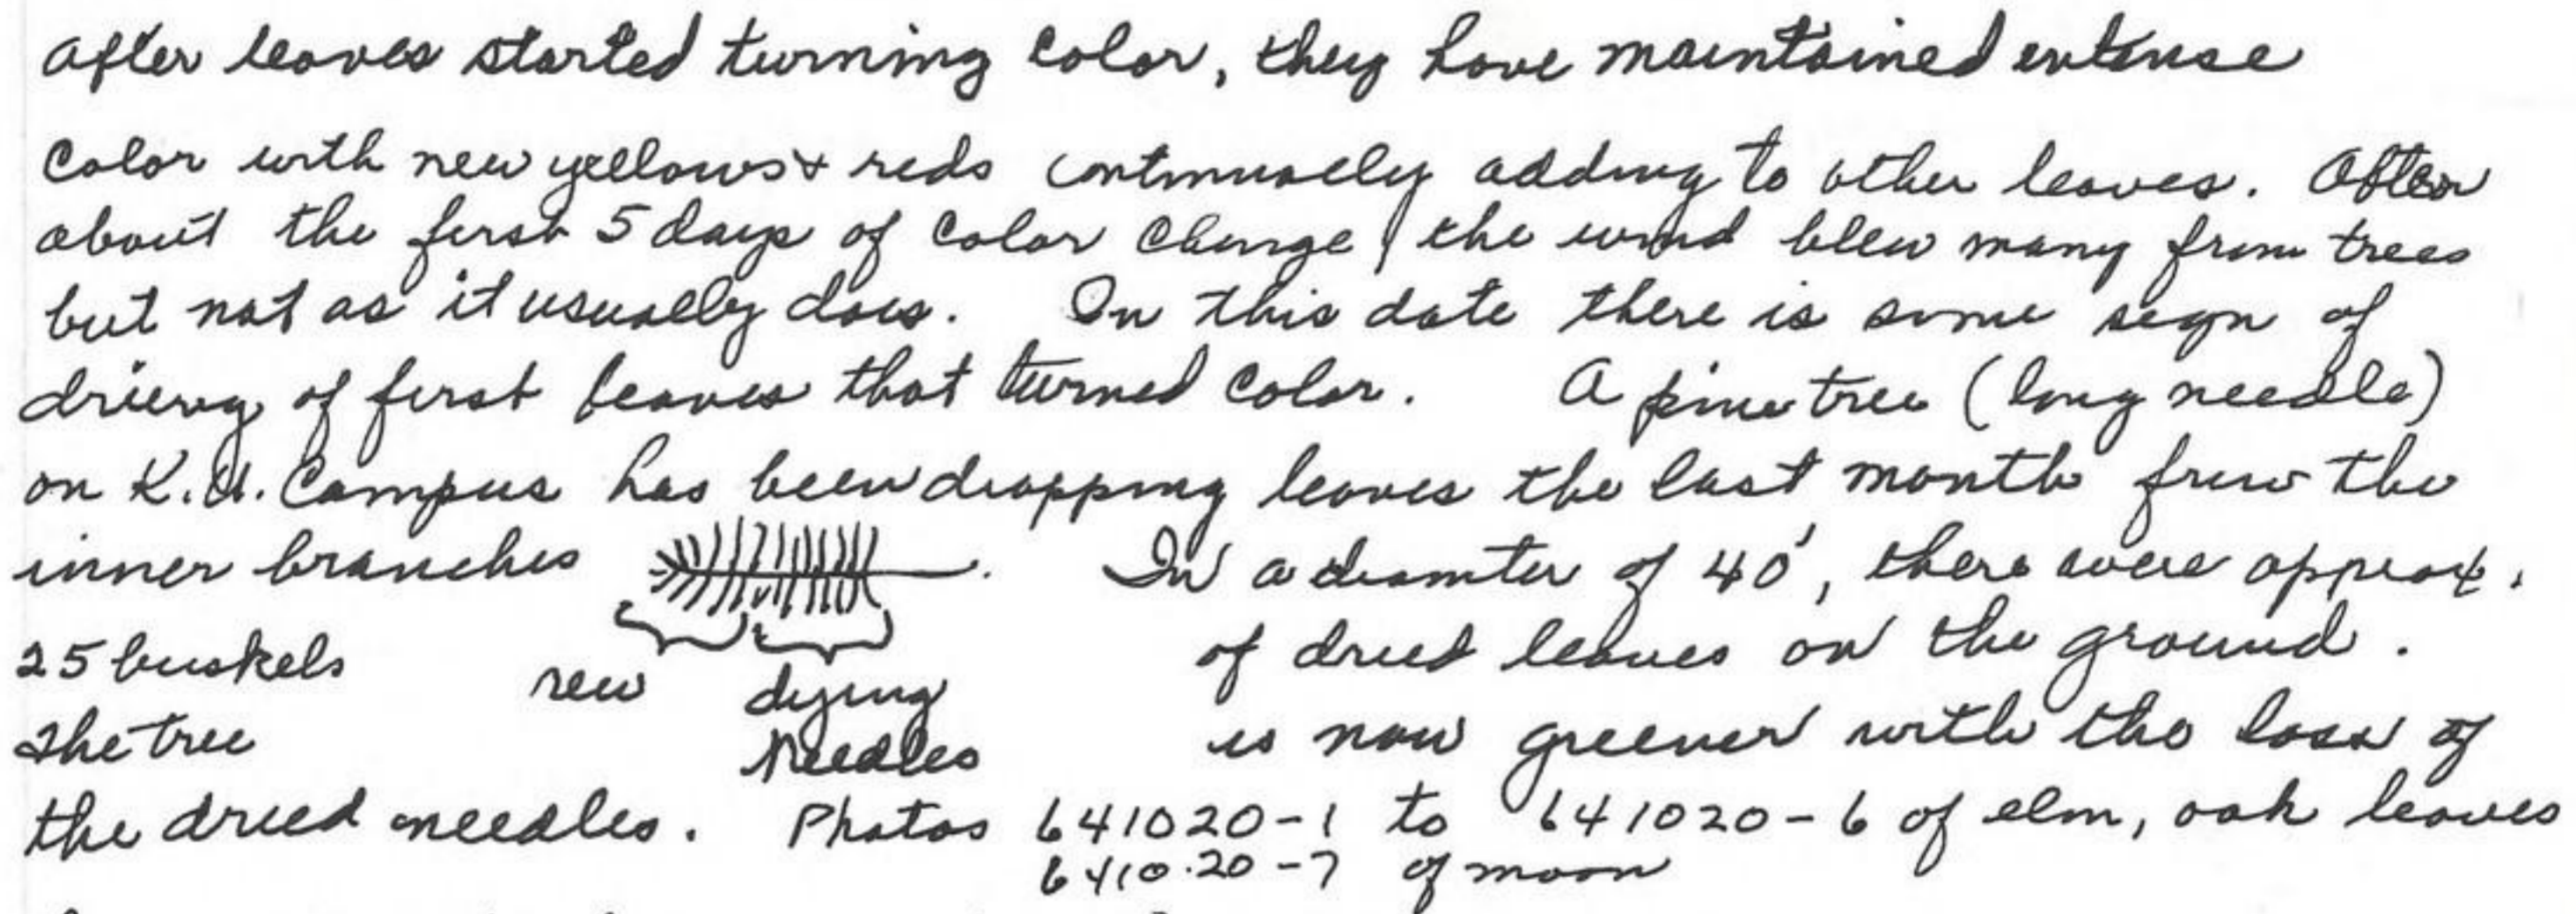 After leaves started turning color, they have maintained entense
Color with new yellows & reds continually adding to other leaves. After
about the first 5 days of color change, the wind blew many from trees
but not as it usually does. On this date there is some sign of
drieing of first leaves that turned color. A pine tree (long needle)
on K.U. Campus has been dropping leaves the last month from the
inner branches . In a diamter of 40', there were approx.
25 buskels of dried leaves on the ground.
new dying
The tree is now greener with the loss of
Needles
the dried needles. Photos 641020-1 to 641020-6 of elm, oak leaves
6410.20-7 of moon